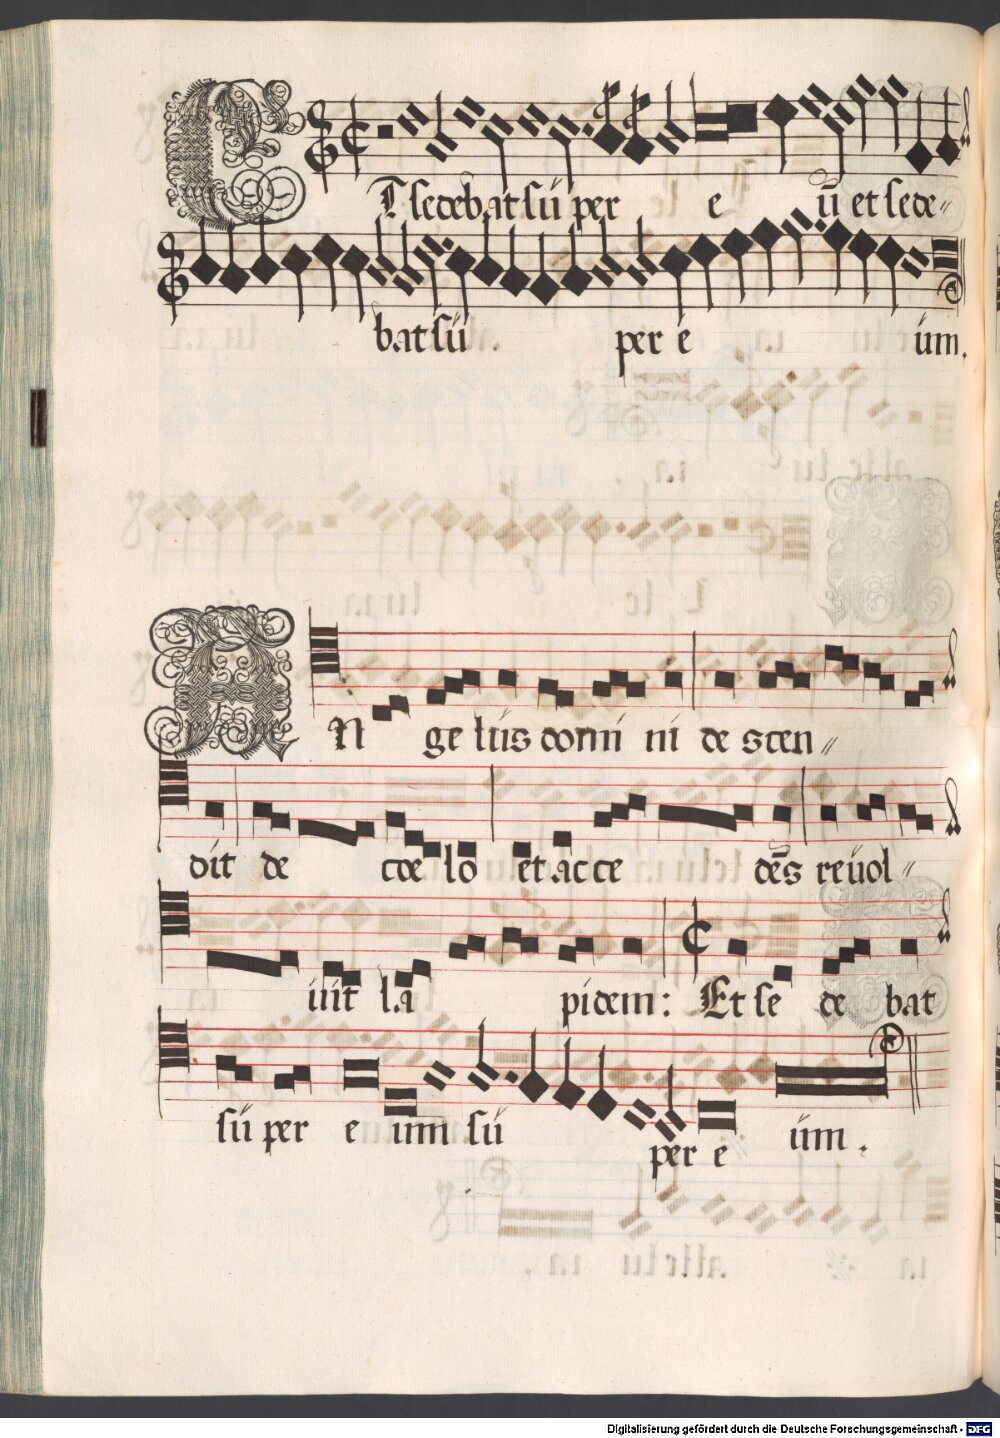 ET sedebat sup per e ū et sede〃
bat sup per e um.
AN ge lus domi ni de scen〃
dit de coe lo et acce dēs revol〃
uit la pidem: Et se de bat
sup per e um sup per e um.
Digitalisierung gefördert durch die Deutsche Forschungsgemeinschaft - DFG